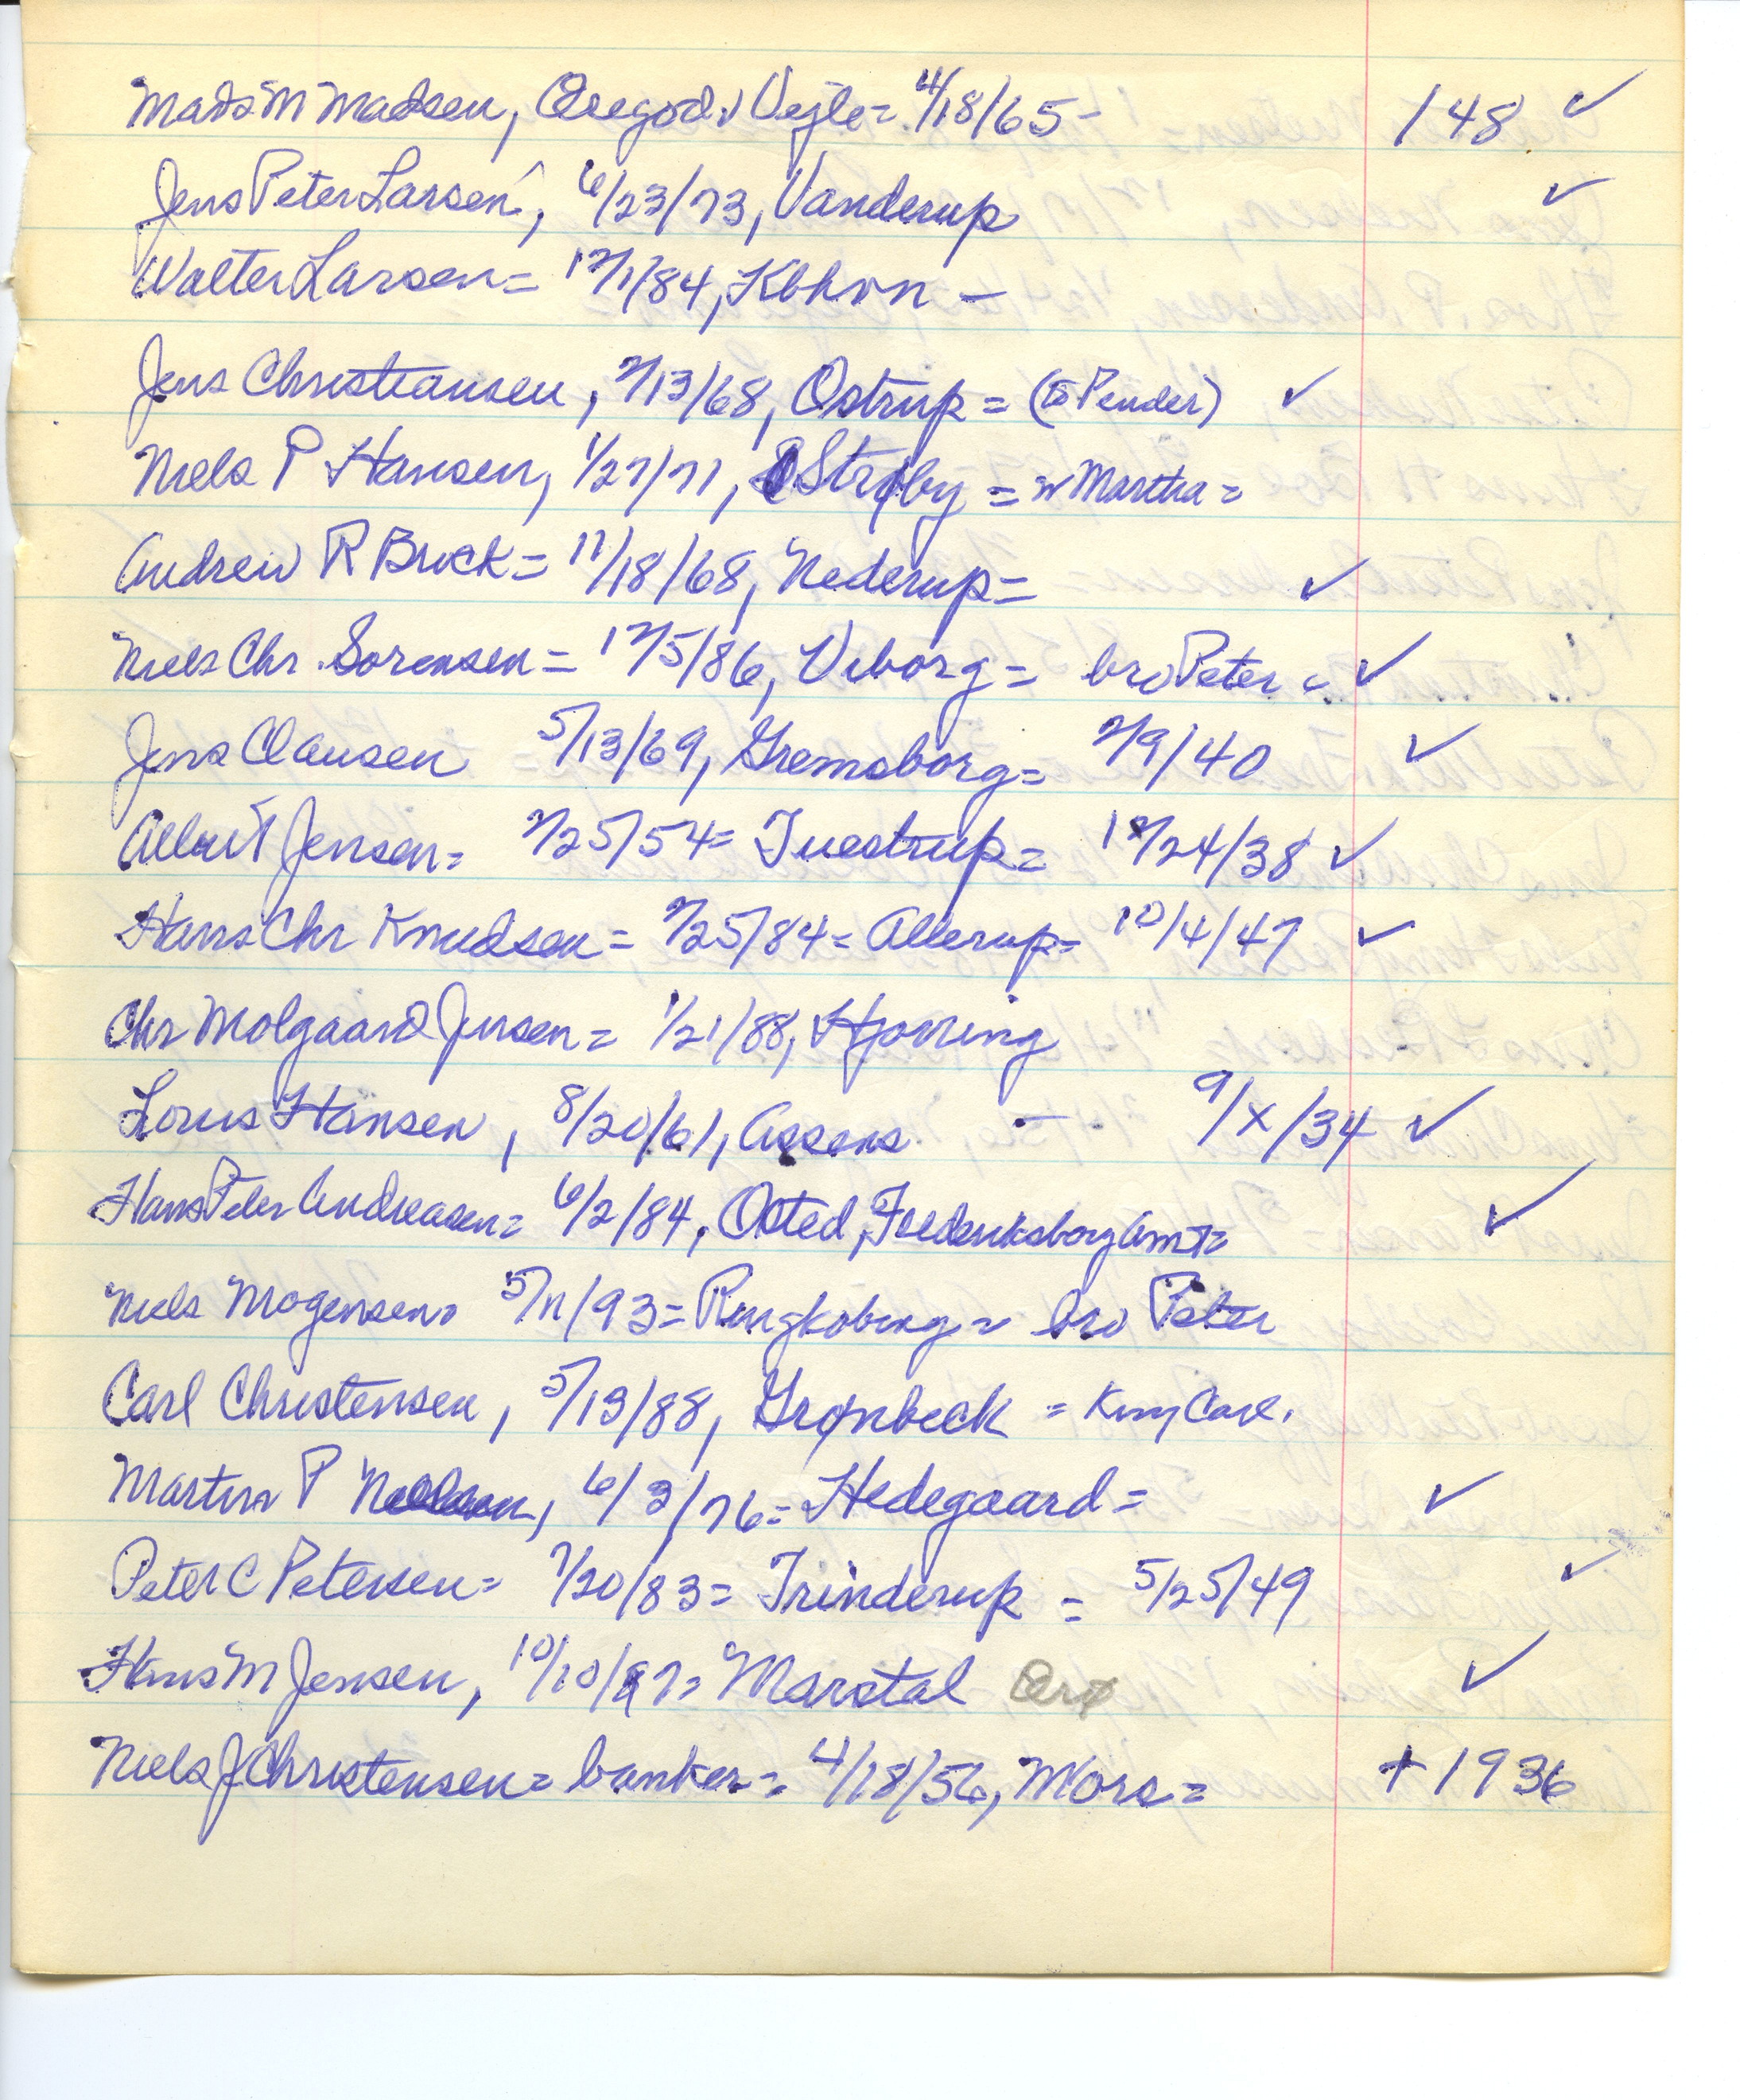 Mads M Madsen, Øregod. v Vejle = 4/18/65 - 148 ✓
Jens Peter Larsen, 6/23/73, Vanderup ✓
Walter Larsen = 12/1/84, Kbhvn -
Jens Christiansen, 2/13/68, Ostrup = (to Pender) ✓
Niels P Hansen, 1/27/71, Strøby = w Martha =
Andrew R Brock = 11/18/68, Nederup = ✓
Niels Chr. Sorensen = 12/5/86, Viborg = bro Peter = ✓
Jens Clausen 5/13/69, Gremsborg = 2/9/40 ✓
Albert Jensen = 2/25/54 = Tuestrup = 12/24/38 ✓
Hans Chr Knudsen = 2/25/84 = Allerup = 10/4/47 ✓
Chr Molgaard Jensen = 1/21/88, Hjorring
Louis Hansen, 8/20/61, Assens - 9/X/34 ✓
Hans Peter Andreasen = 6/2/84, Osted, Frederiksborg Amt = ✓
Niels Mogensen = 5/11/93 = Ringkobing = bro Peter
Carl Christensen, 5/13/88, Grønbeck = King Carl.
Martin P Nielsen, 6/3/76 = Hedegaard = ✓
Peter C Petersen = 7/20/83 = Trinderup = 5/25/49 ✓
Hans M Jensen, 10/10/87 = Marstal Ærø ✓
Niels J Christensen = banker = 4/18/56, Mors = + 1936